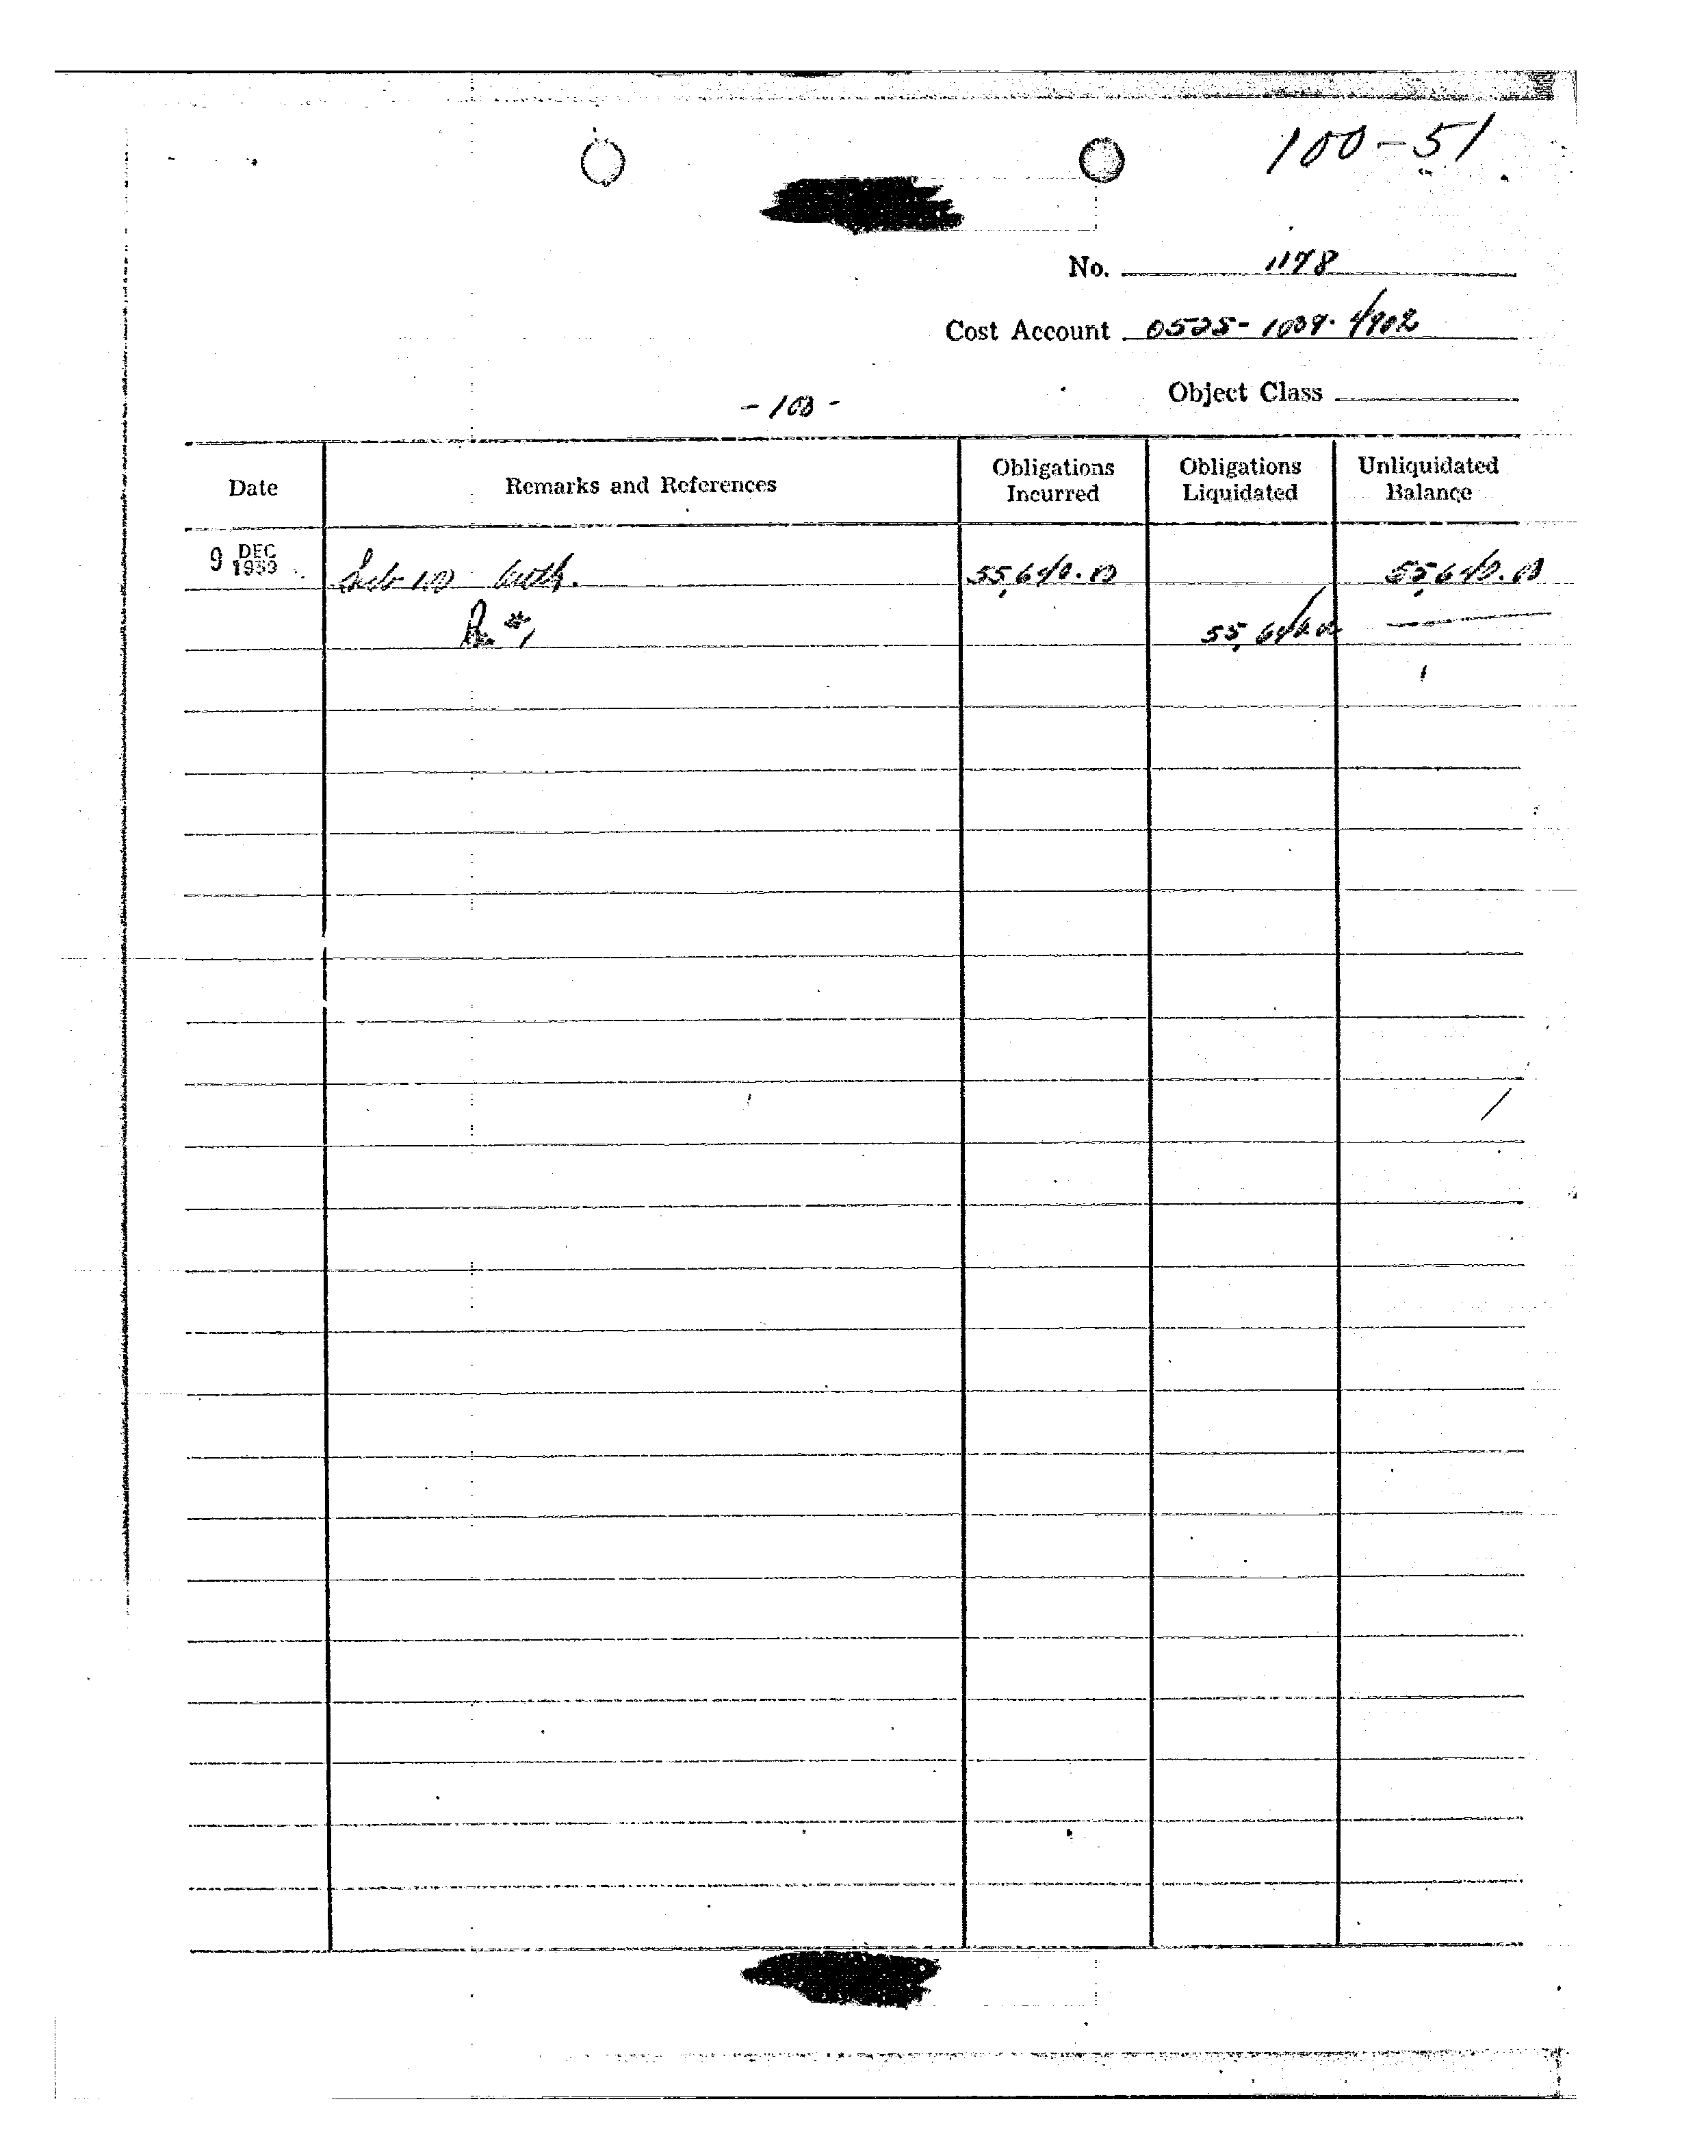 100-51
No. 1178
Cost Account 0525-1009-4902
Object Class
- 100 -
Date Remarks and References Obligations Incurred Obligations Liquidated Unliquidated Balance
9 DEC 1959 Sub 100 auth. 55,640.00 55,640.00
#1 55,640.00